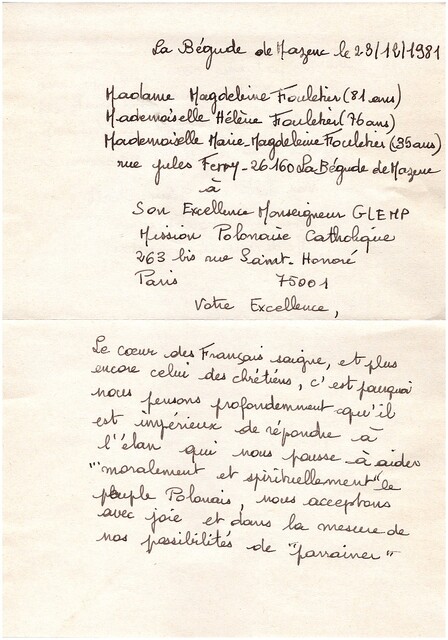 La Bégude de Mazenc le 23/12/1981
Madame Magdeleine Fouletier (81 ans)
Mademoiselle Hélène Fouletier (76 ans)
Mademoiselle Marie-Magdeleine Fouletier (35 ans)
rue Jules Ferry - 26160 La Bégude de Mazenc
à
Son Excellence Monseigneur GLEMP
Mission Polonaise Catholique
263 bis rue Saint-Honoré
Paris 75001
Votre Excellence,
Le cœur des Français saigne, et plus
encore celui des chrétiens, c'est pourquoi
nous pensons profondemment qu'il
est impérieux de répondre à
l'élan qui nous pousse à aider
"moralement et spirituellement" le
peuple Polonais, nous acceptons
avec joie et dans la mesure de
nos possibilités de "parrainer"